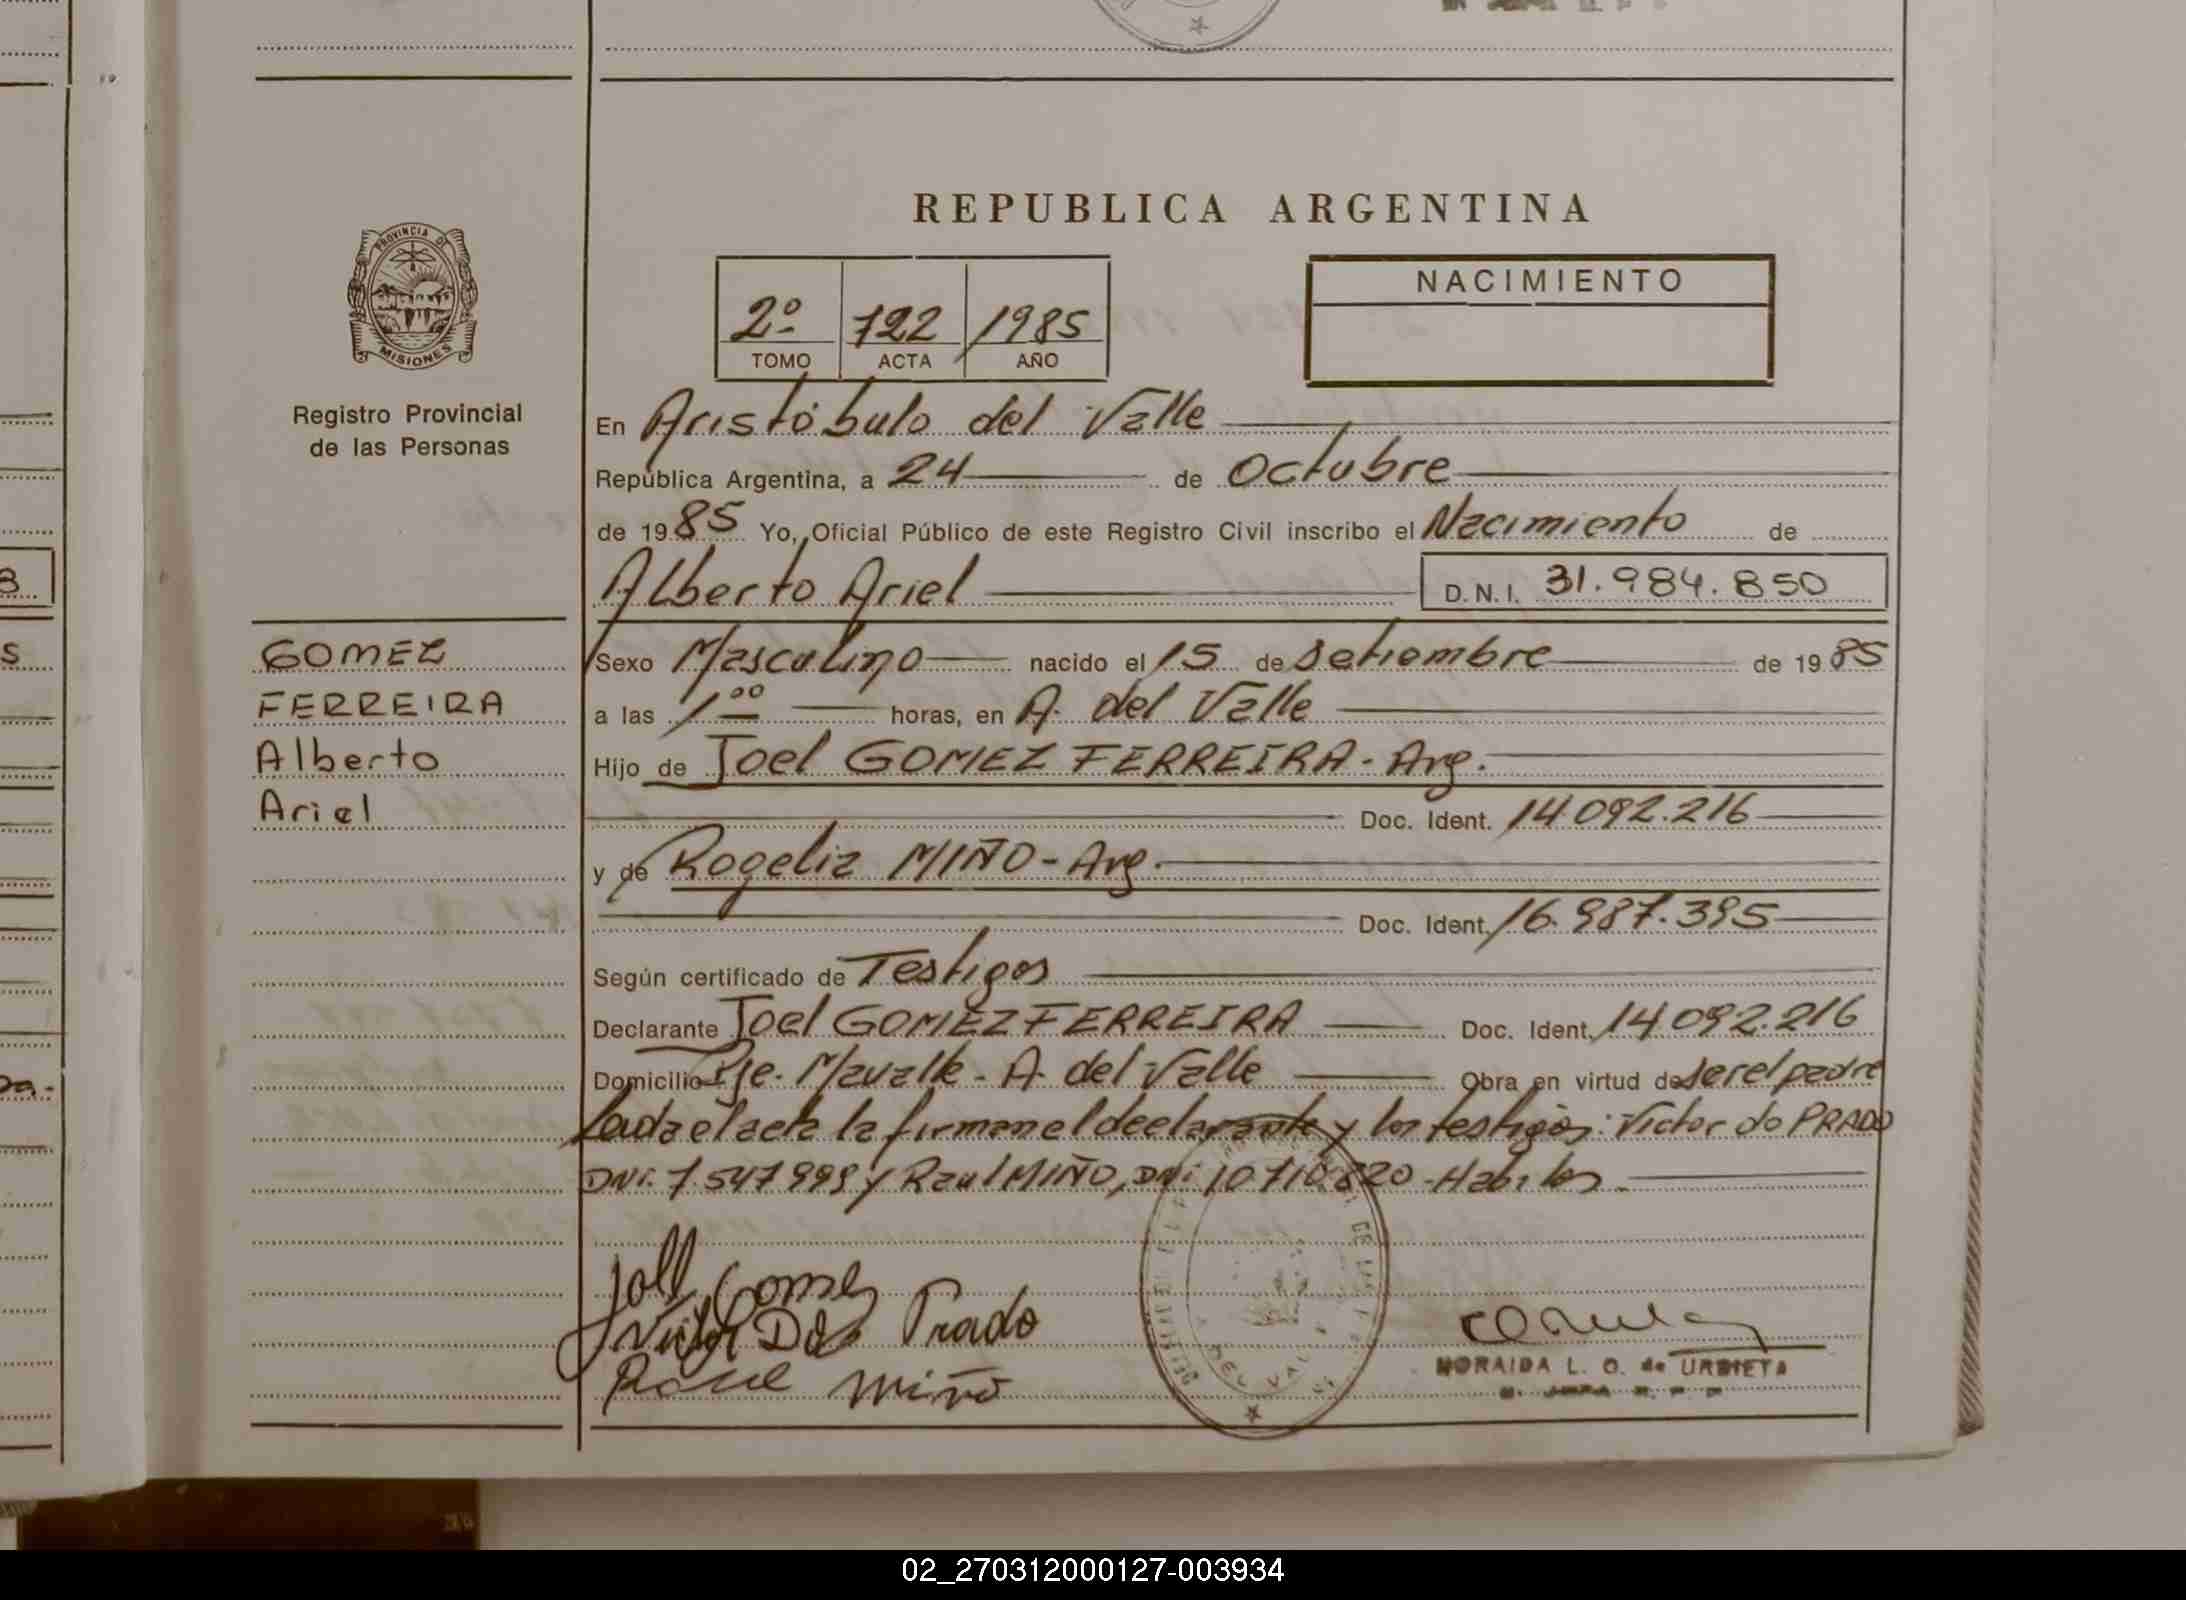 REPUBLICA ARGENTINA
PROVINCIA DE
MISIONES
Registro Provincial
de las Personas
2º 722 1985
TOMO ACTA AÑO
NACIMIENTO
En Aristóbulo del Valle
República Argentina, a 24 de Octubre
de 1985 Yo, Oficial Público de este Registro Civil inscribo el Nacimiento de
Alberto Ariel D.N.I. 31.984.850
GOMEZ
FERREIRA
Alberto
Ariel
Sexo Masculino nacido el 15 de setiembre de 1985
a las 1ºº horas, en A. del Valle
Hijo de Joel GOMEZ FERREIRA - Arg.
Doc. Ident. 14.092.216
y de Rogelia MIÑO - Arg.
Doc. Ident. 16.987.395
Según certificado de Testigos
Declarante Joel GOMEZ FERREIRA Doc. Ident. 14.092.216
Domicilio Pje. - A. del Valle Obra en virtud de ser el padre
Leida el acta la firman el declarante y los testigos: Victor do PRADO
DNI. 7.547.999 y Raul MIÑO, DNI 10.710.820 - Habiles.
Joel Gomez
Victor Do Prado
Raul Miño
DEL VALLE
NORAIDA L. O. de URBIETA
02_270312000127-003934